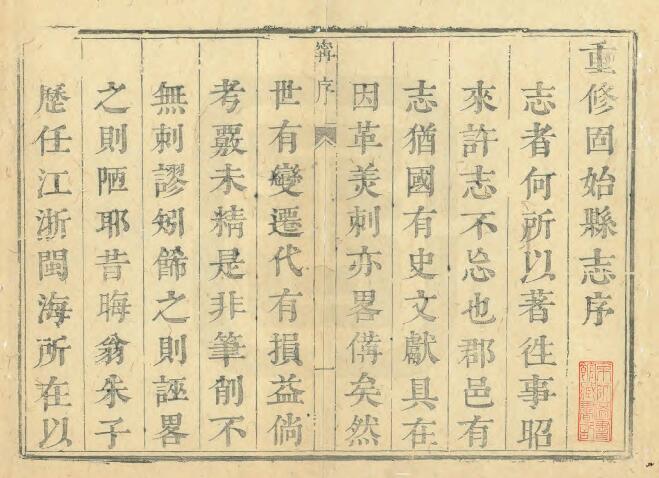 重修固始縣志序
志者何所以著徃事昭
來許志不忘也郡邑有
志猶國有史文獻具在
因革羙刺亦畧備矣然
寗序
世有變遷代有損益倘
考覈未精是非筆削不
無刺謬矧餙之則誣畧
之則陋耶昔晦翁朱子
歷任江浙閩海所在以